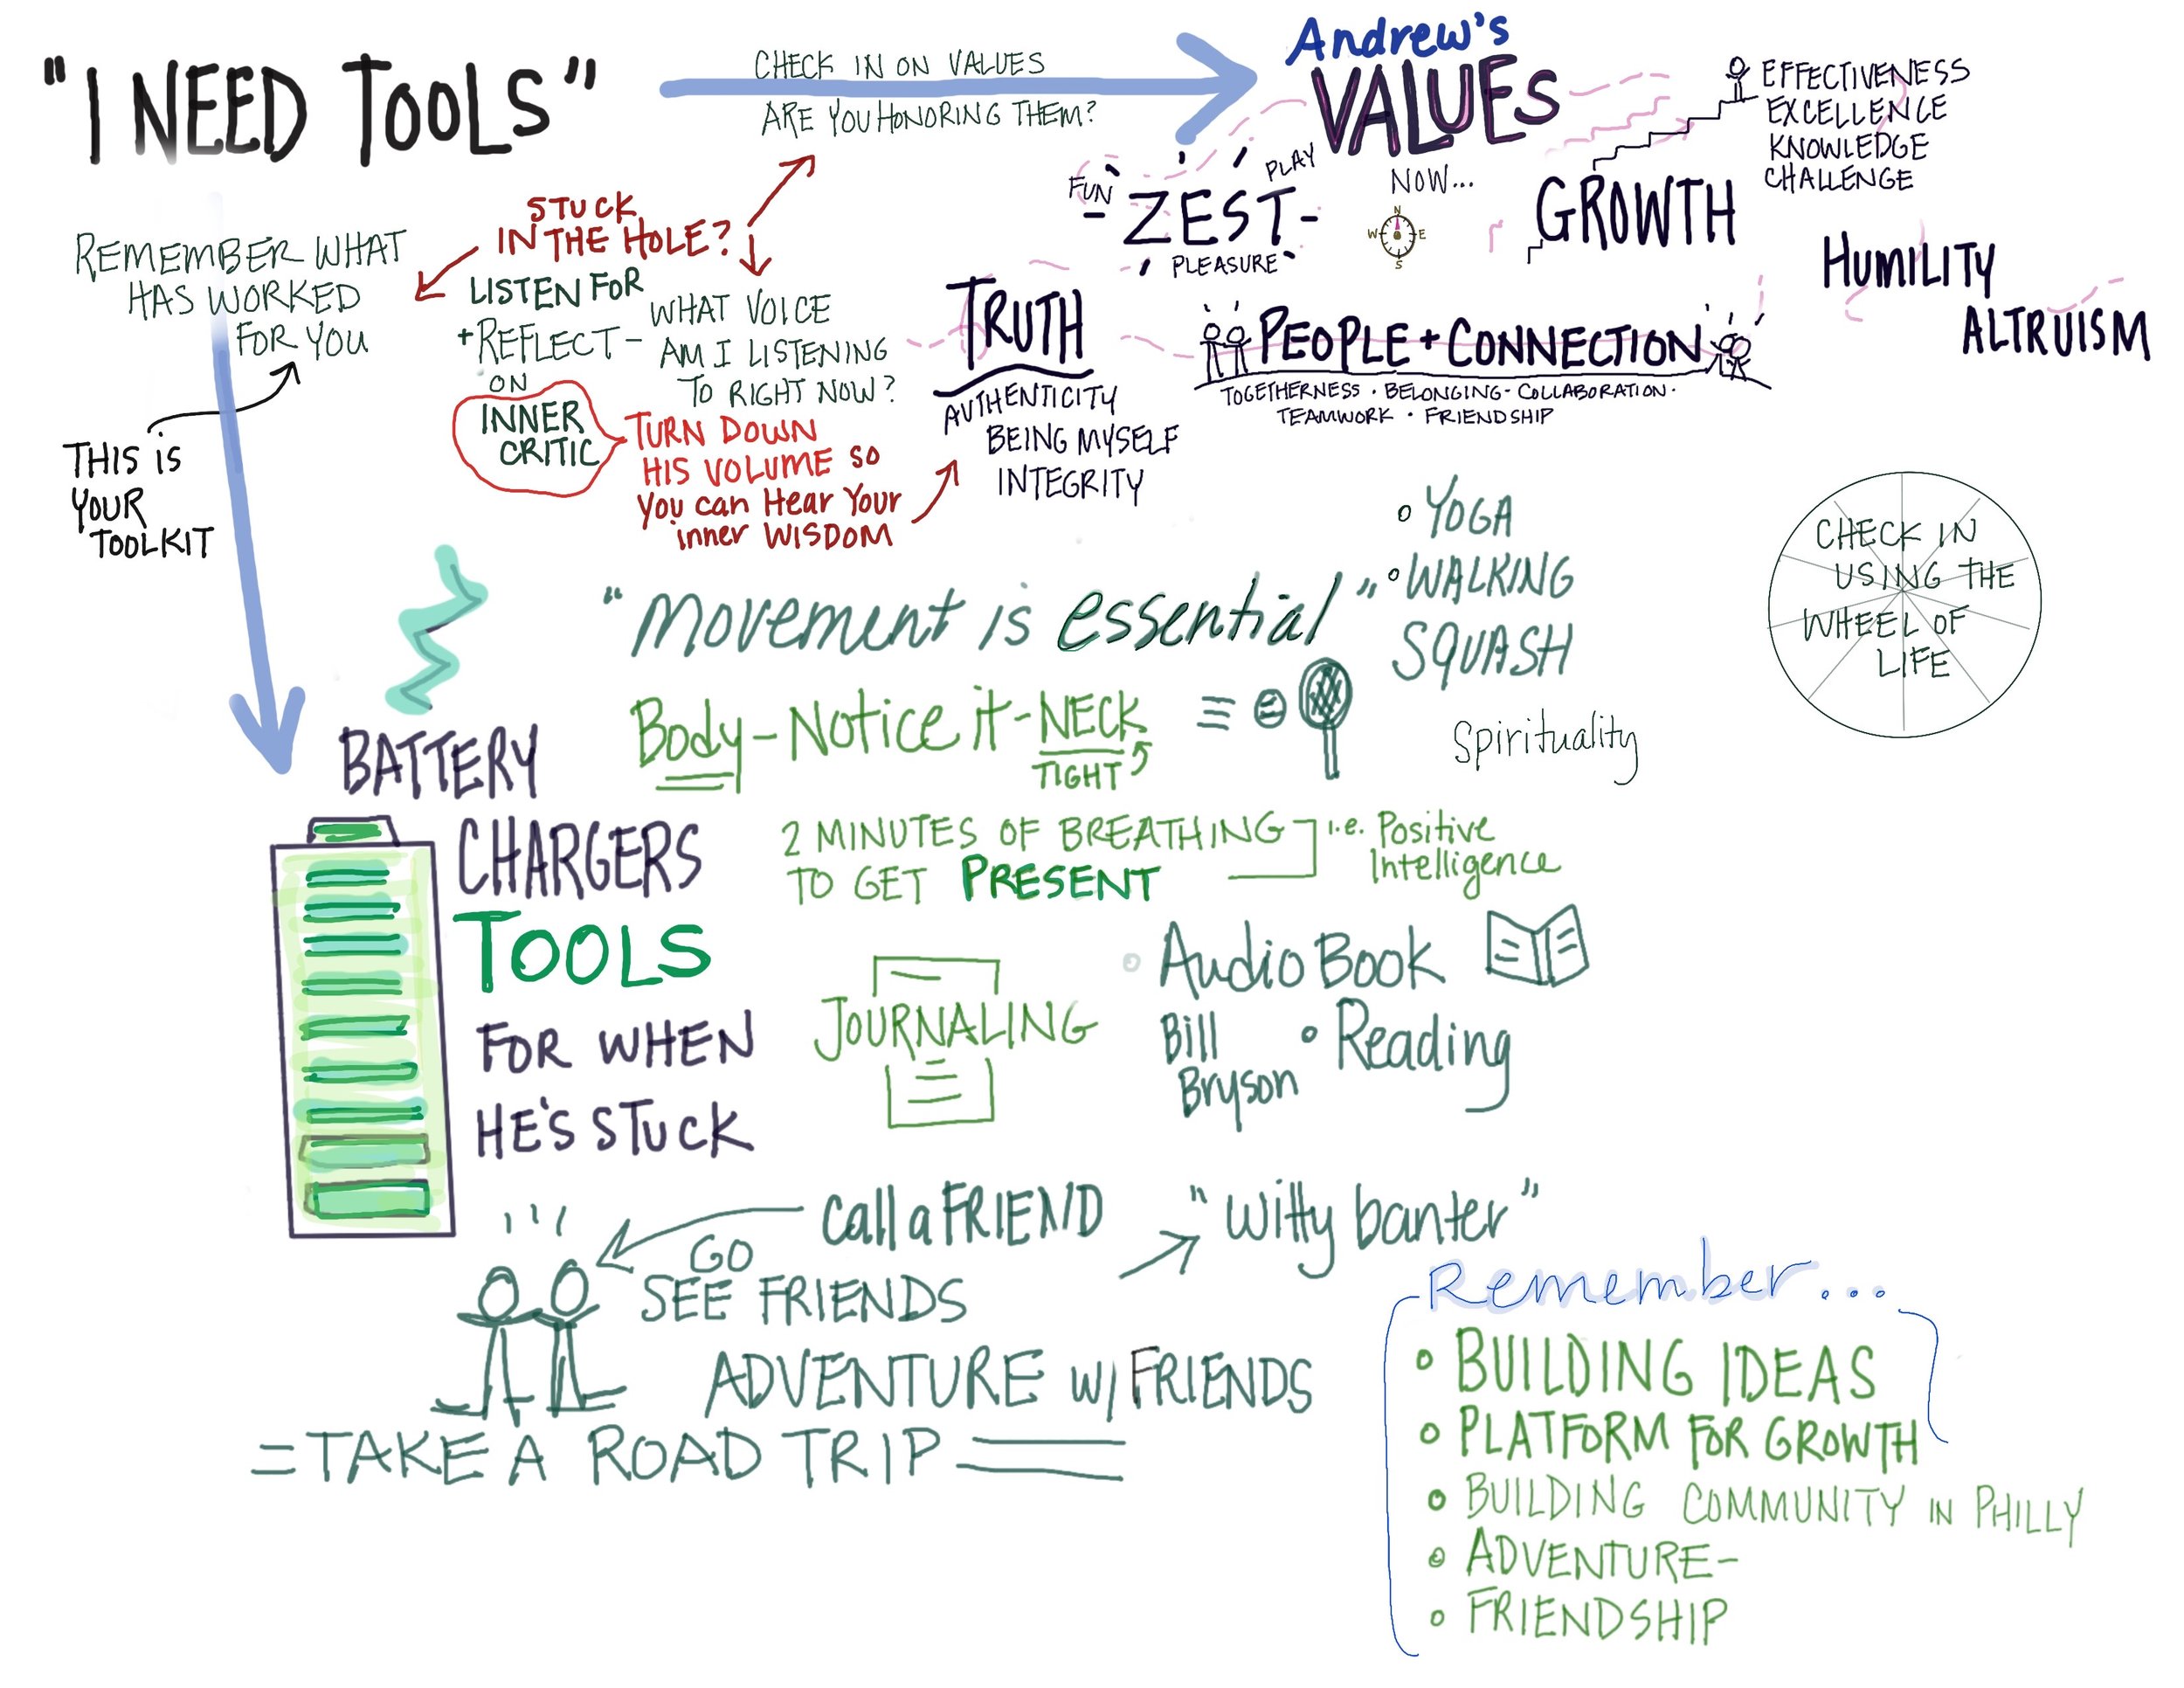 "I NEED TOOLS"
CHECK IN ON VALUES
ARE YOU HONORING THEM?
Andrew's
VALUES
NOW...
N
W E
S
FUN
PLAY
-ZEST-
PLEASURE
GROWTH
EFFECTIVENESS
EXCELLENCE
KNOWLEDGE
CHALLENGE
HUMILITY
ALTRUISM
TRUTH
AUTHENTICITY
BEING MYSELF
INTEGRITY
PEOPLE + CONNECTION
TOGETHERNESS · BELONGING - COLLABORATION ·
TEAMWORK · FRIENDSHIP
REMEMBER WHAT
HAS WORKED
FOR YOU
THIS is
YOUR
TOOLKIT
STUCK
IN THE HOLE?
LISTEN FOR
+REFLECT-
ON
INNER
CRITIC
WHAT VOICE
AM I LISTENING
TO RIGHT NOW?
TURN DOWN
HIS VOLUME so
You can Hear Your
inner WISDOM
"Movement is essential"
° YOGA
° WALKING
SQUASH
CHECK IN
USING THE
WHEEL OF
LIFE
Body - Notice it - NECK
TIGHT
Spirituality
BATTERY
CHARGERS
TOOLS
FOR WHEN
HE'S STUCK
2 MINUTES OF BREATHING
TO GET PRESENT
i.e. Positive
Intelligence
JOURNALING
° Audio Book
Bill
Bryson
° Reading
Call a FRIEND
"Witty banter"
GO
SEE FRIENDS
ADVENTURE w/ FRIENDS
= TAKE A ROAD TRIP =
Remember...
° BUILDING IDEAS
° PLATFORM FOR GROWTH
° BUILDING COMMUNITY IN PHILLY
° ADVENTURE-
° FRIENDSHIP